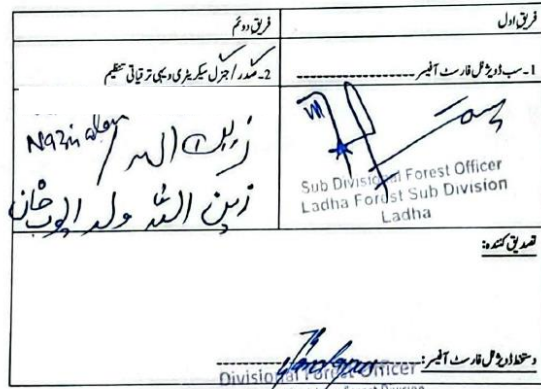 فریق اول
فریق دوئم
1۔ سب ڈویژنل فارسٹ آفیسر
2۔ صدر / جنرل سیکریٹری ویہی ترقیاتی تنظیم
Sub Divisional Forest Officer
Ladha Forest Sub Division
Ladha
زین اللہ ولد ایوب خان
تصدیق کنندہ:
دستخط ڈویژنل فارسٹ آفیسر:
Divisional Forest Officer